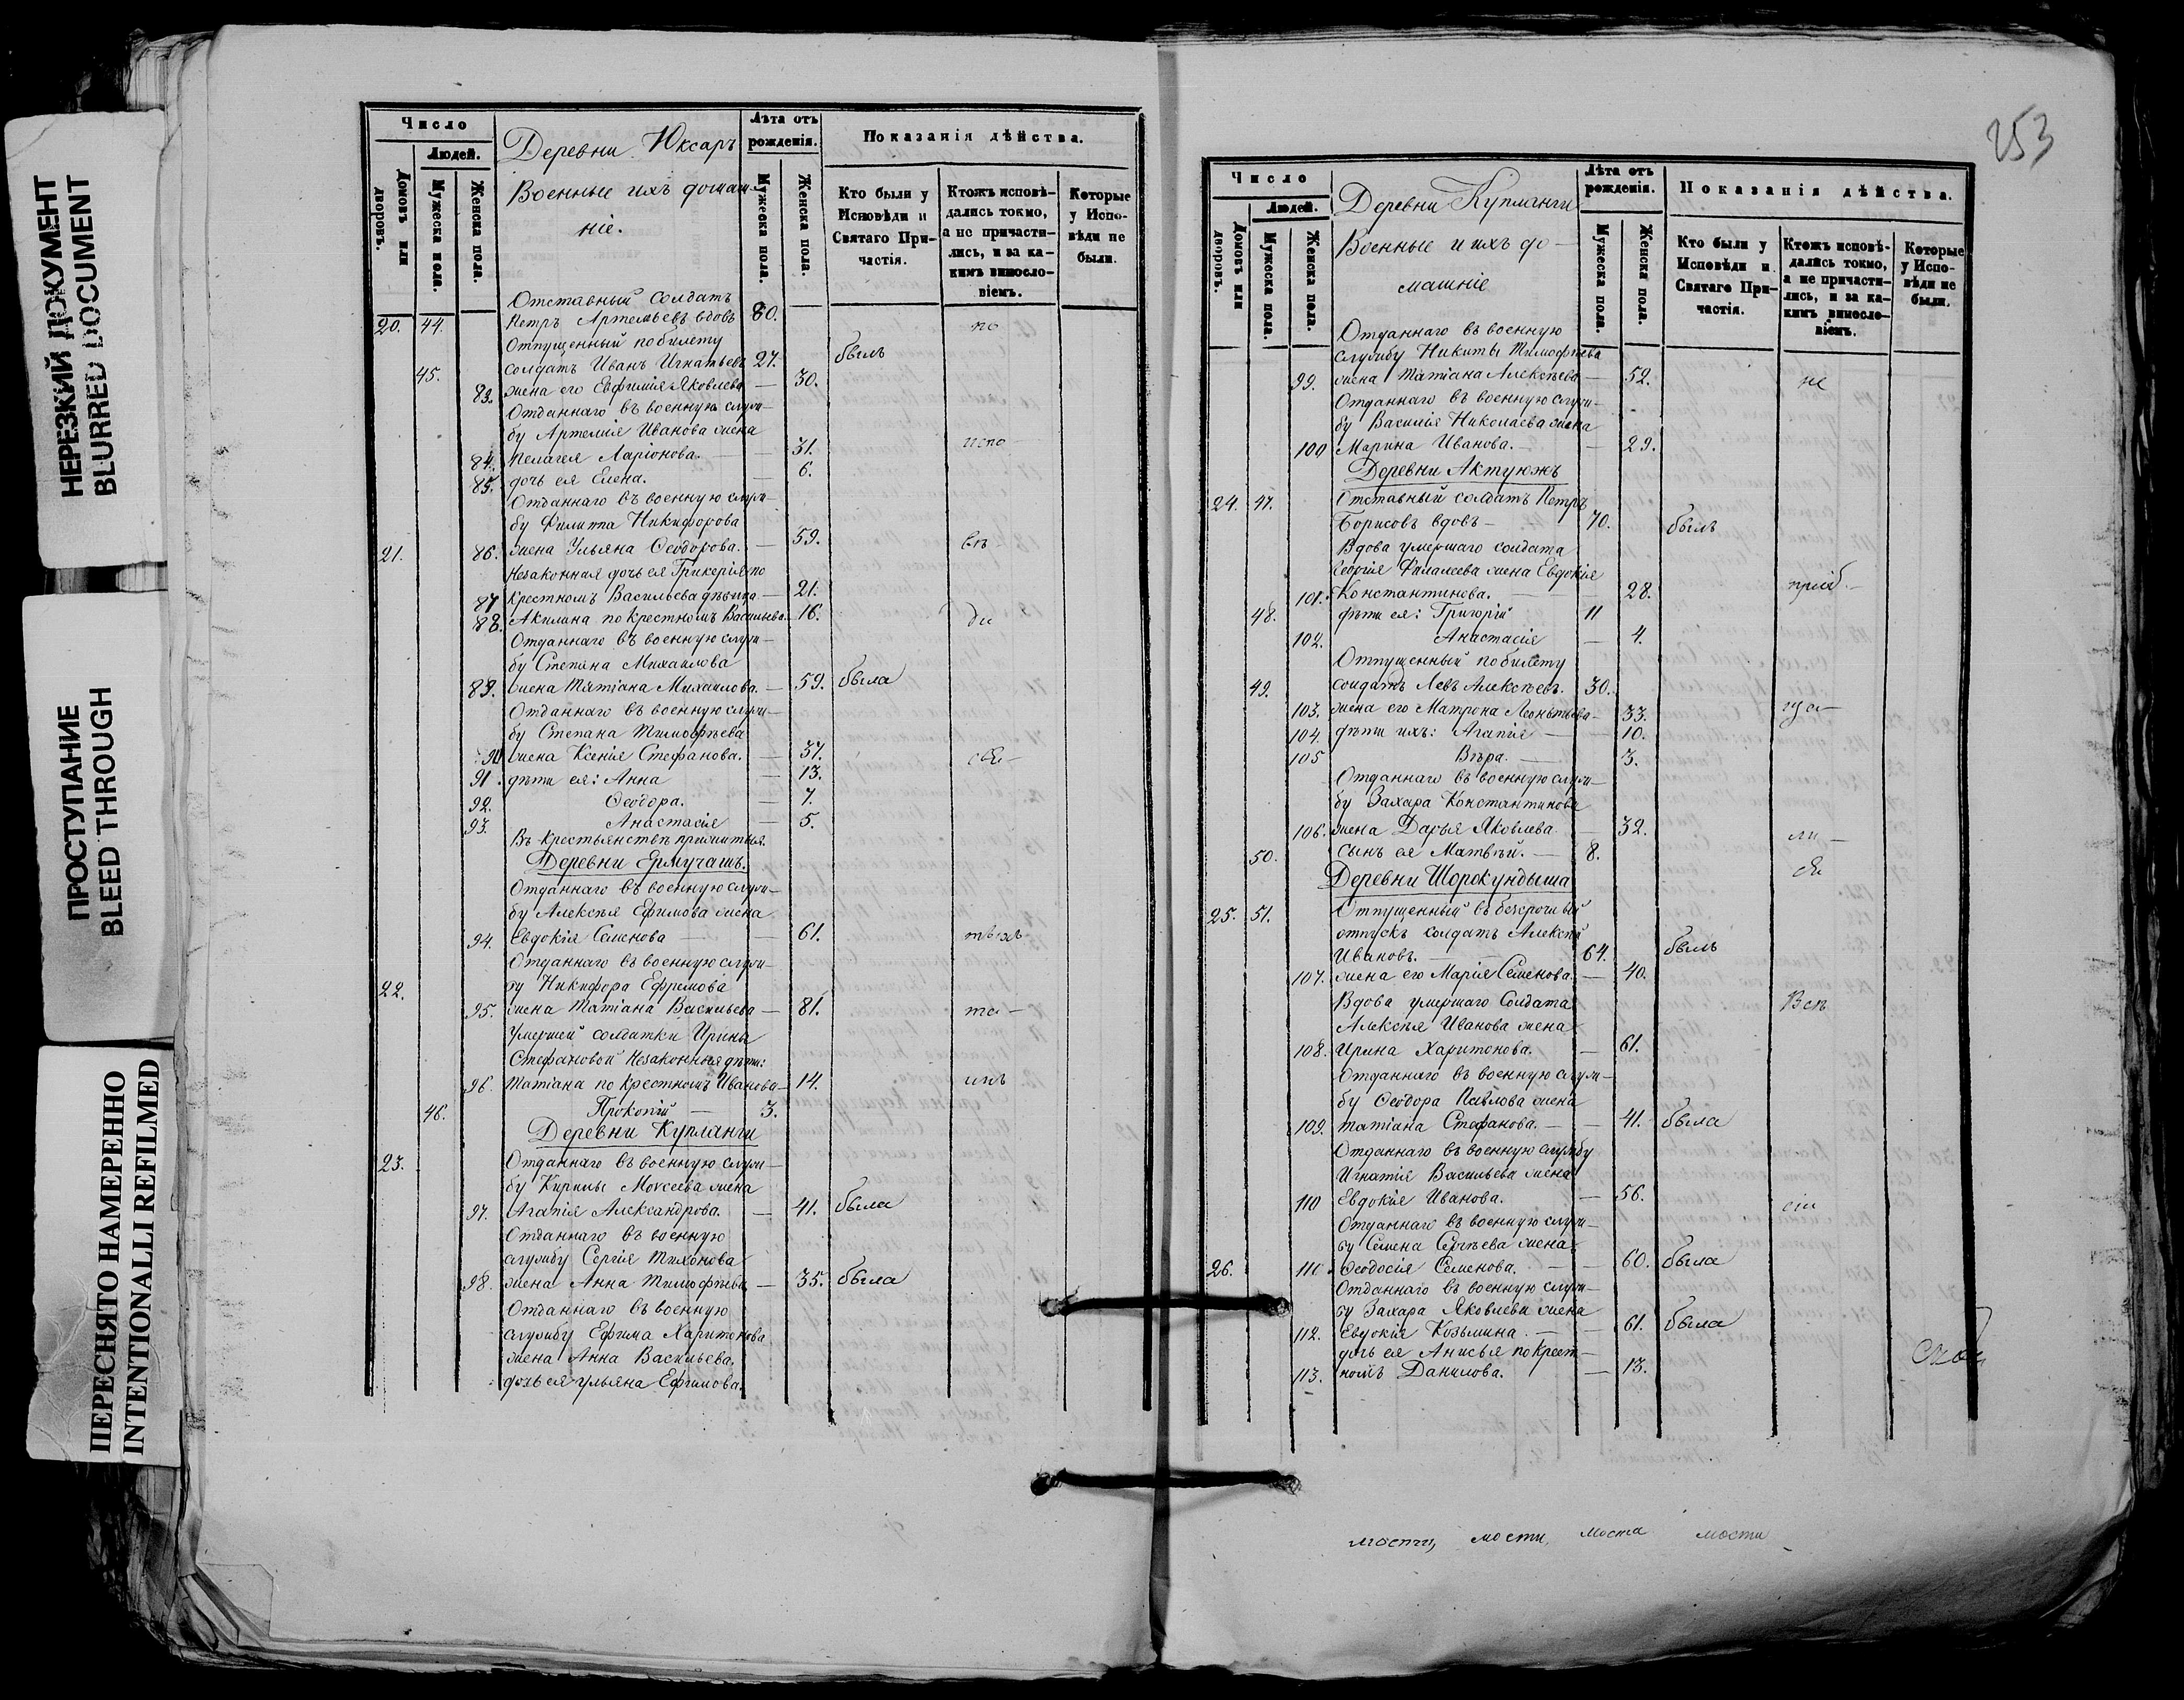 НЕРЕЗКИЙ ДОКУМЕНТ
BLURRED DOCUMENT
ПРОСТУПАНИЕ
BLEED THROUGH
ПЕРЕСНЯТО НАМЕРЕННО
INTENTIONALLI REFILMED
Число
Людей.
Домовъ или дворовъ.
Мужеска пола.
Женска пола.
Деревни Юксаръ
Военные ихъ домаш-
ніе.
Лѣта отъ рожденія.
Мужеска пола.
Женска пола.
Показанія дѣйства.
Кто были у Исповѣди и Святаго При-частія.
Ктожъ исповѣ-дались токмо, а не причасти-лись, и за ка-кимъ винословіемъ.
Которые у Испо-вѣди не были.
Отставный солдатъ
20. 44. Петръ Артемьевъ вдовъ 80. по
Отпущенный по билету
45. солдатъ Иванъ Игнатьевъ 27. былъ
83. жена его Евфимія Яковлева — 30.
Отданнаго въ военную служ-
бу Артемія Иванова жена
84. Пелагея Ларіонова. — 31. испо
85. дочь ея Елена. — 6.
Отданнаго въ военную служ-
бу Филиппа Никифорова
21. 86. жена Ульяна Ѳеодорова. — 59.
Незаконная дочь ея Гликерія по
87 крестномъ Васильева дѣвица — 21.
88. Акилина по крестномъ Васильева — 16. ди
Отданнаго въ военную служ-
бу Степана Михаилова
89. жена Татіана Михаилова. — 59. была
Отданнаго въ военную служ-
бу Степана Тимофѣева
90 жена Ксенія Стефанова. — 37.
91. дѣти ея: Анна — 13.
92. Ѳеодора. — 7.
93. Анастасія — 5.
Въ крестьянствѣ прижитыя.
Деревни Ермучашъ.
Отданнаго въ военную служ-
бу Алексѣя Ефимова жена
94. Евдокія Семенова — 61. тѣхъ
Отданнаго въ военную служ-
22. бу Никифора Ефремова
95. жена Татіана Васильева — 81. та-
Умершей солдатки Ирины
Стефановой незаконныя дѣти:
96. Татіана по крестномъ Иванова — 14. инъ
46. Прокопій — 3.
Деревни Купланги
23. Отданнаго въ военную служ-
бу Кирилы Моѵсеева жена
97. Агапія Александрова. — 41. была
Отданнаго въ военную
службу Сергія Тихонова
98. жена Анна Тимофѣева — 35. была
Отданнаго въ военную
службу Ефима Харитонова
жена Анна Васильева.
дочь ея Ульяна Ефимова.
253
Число
Людей.
Домовъ или дворовъ.
Мужеска пола.
Женска пола.
Деревни Купланги
Военные и ихъ до-
машніе
Лѣта отъ рожденія.
Мужеска пола.
Женска пола.
Показанія дѣйства.
Кто были у Исповѣди и Святаго При-частія.
Ктожъ исповѣ-дались токмо, а не причасти-лись, и за ка-кимъ винословіемъ.
Которые у Испо-вѣди не были.
Отданнаго въ военную
службу Никиты Тимофѣева
99. жена Татіана Алексѣева — 52. не
Отданнаго въ военную служ-
бу Василія Николаева жена
100 Марина Иванова. — 29.
Деревни Актуюжъ
24. 47. Отставный солдатъ Петръ
Борисовъ вдовъ — 70. былъ
Вдова умершаго солдата
Георгія Фалалеева жена Евдокія
101. Константинова. — 28.
48. дѣти ея: Григорій 11
102. Анастасія — 4.
Отпущенный по билету
49. солдатъ Левъ Алексѣевъ. 30.
103. жена его Матрона Леонтьева — 33.
104. дѣти ихъ: Агапія — 10.
105 Вѣра. — 3.
Отданнаго въ военную служ-
бу Захара Константинова
106. жена Дарья Яковлева. — 32. ли-
50. сынъ ея Матвѣй. — 8.
Деревни Шорокундыша
25. 51. Отпущенный въ безсрочный
отпускъ солдатъ Алексѣй
Ивановъ. — 64. былъ
107. жена его Марія Семенова. — 40.
Вдова умершаго Солдата
Алексѣя Иванова жена
108. Ирина Харитонова. — 61.
Отданнаго въ военную служ-
бу Ѳеодора Павлова жена
109. Татіана Стефанова. — 41. была
Отданнаго въ военную службу
Игнатія Васильева жена
110 Евдокія Иванова. — 56.
Отданнаго въ военную служ-
бу Семена Сергѣева жена
26. 111. Ѳеодосія Семенова. — 60. была
Отданнаго въ военную служ-
бу Захара Яковлева жена
112. Евдокія Козьмина. — 61. была
дочь ея Анисья по крест-
113. номъ Данилова. — 13.
мости, мости, моста мости